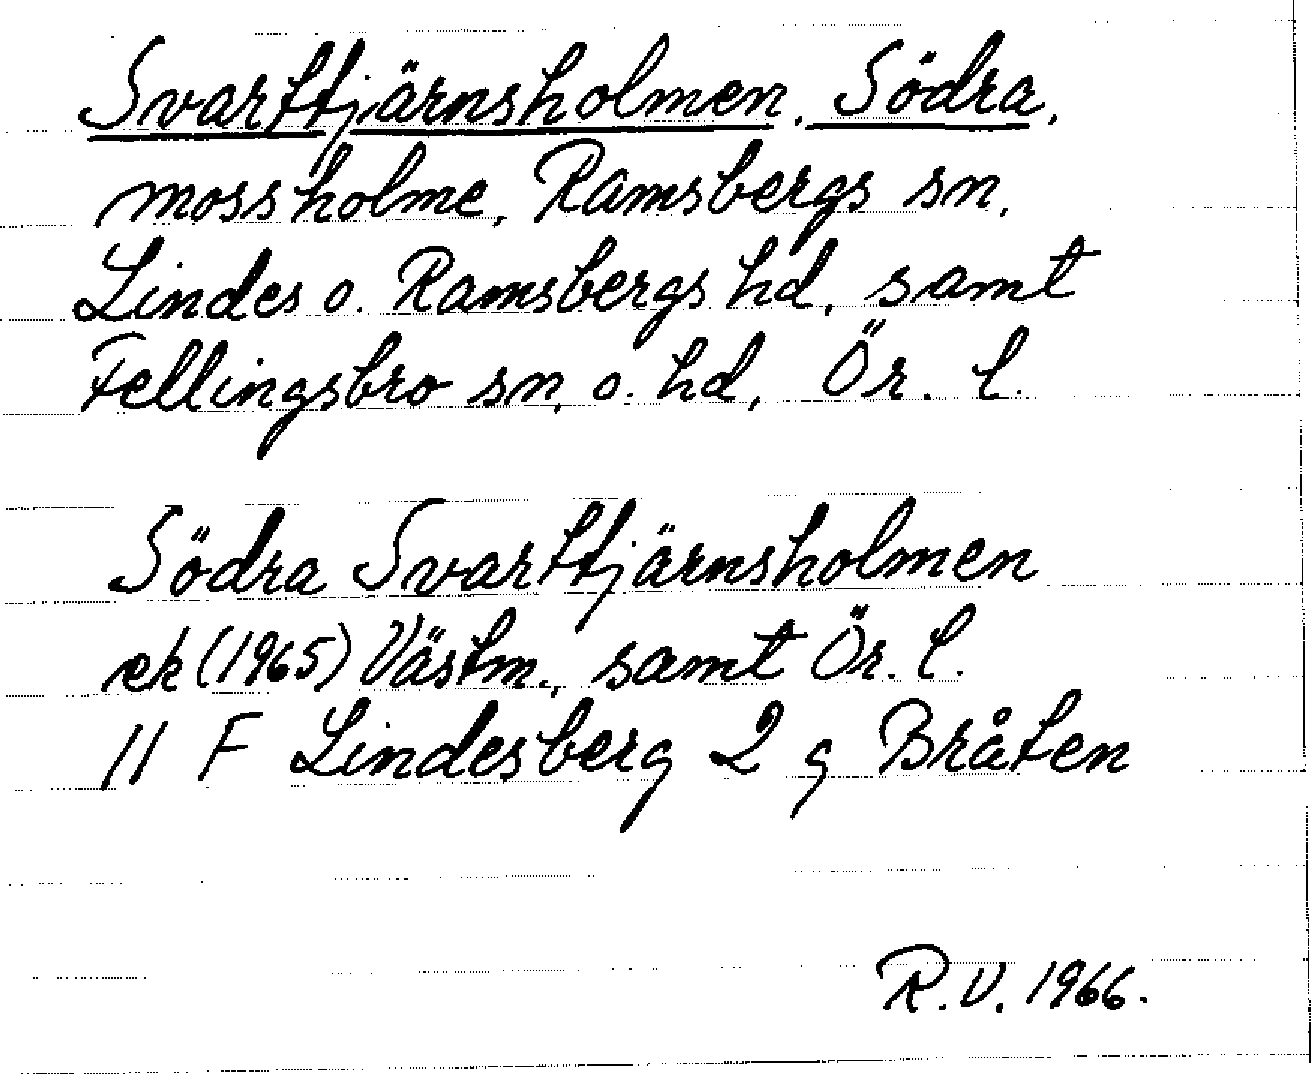 Svarttjärnsholmen, Södra,
mossholme, Ramsbergs sn,
Lindes o. Ramsbergs hd, samt
Fellingsbro sn, o. hd, Ör. l.
Södra Svarttjärnsholmen
ek (1965) Västm., samt Ör. l.
11 F Lindesberg 2 g Bråten
R.V. 1966.